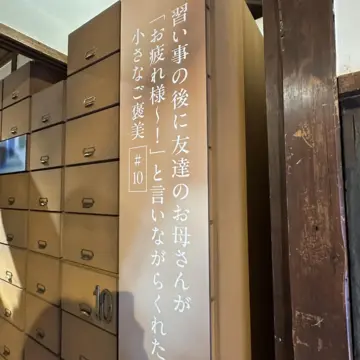 習い事の後に友達のお母さんが
「お疲れ様〜！」と言いながらくれた
小さなご褒美 #10
10